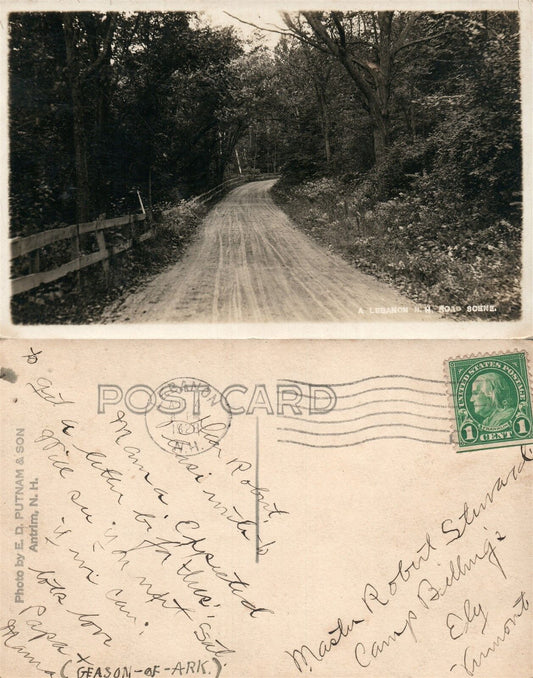 A LEBANON N. H. ROAD SCENE.
POST CARD
Photo by E. D. PUTNAM & SON
Antrim, N. H.
LEBANON
N.H.
UNITED STATES POSTAGE
FRANKLIN
1 CENT 1
Robert.
Mama expected to
get a letter before this.
Will see you next Sat.
if we can.
lots love
Papa +
Mama
(GEASON-OF-ARK.)
Master Robert Steward
Camp Billings
Ely
Vermont